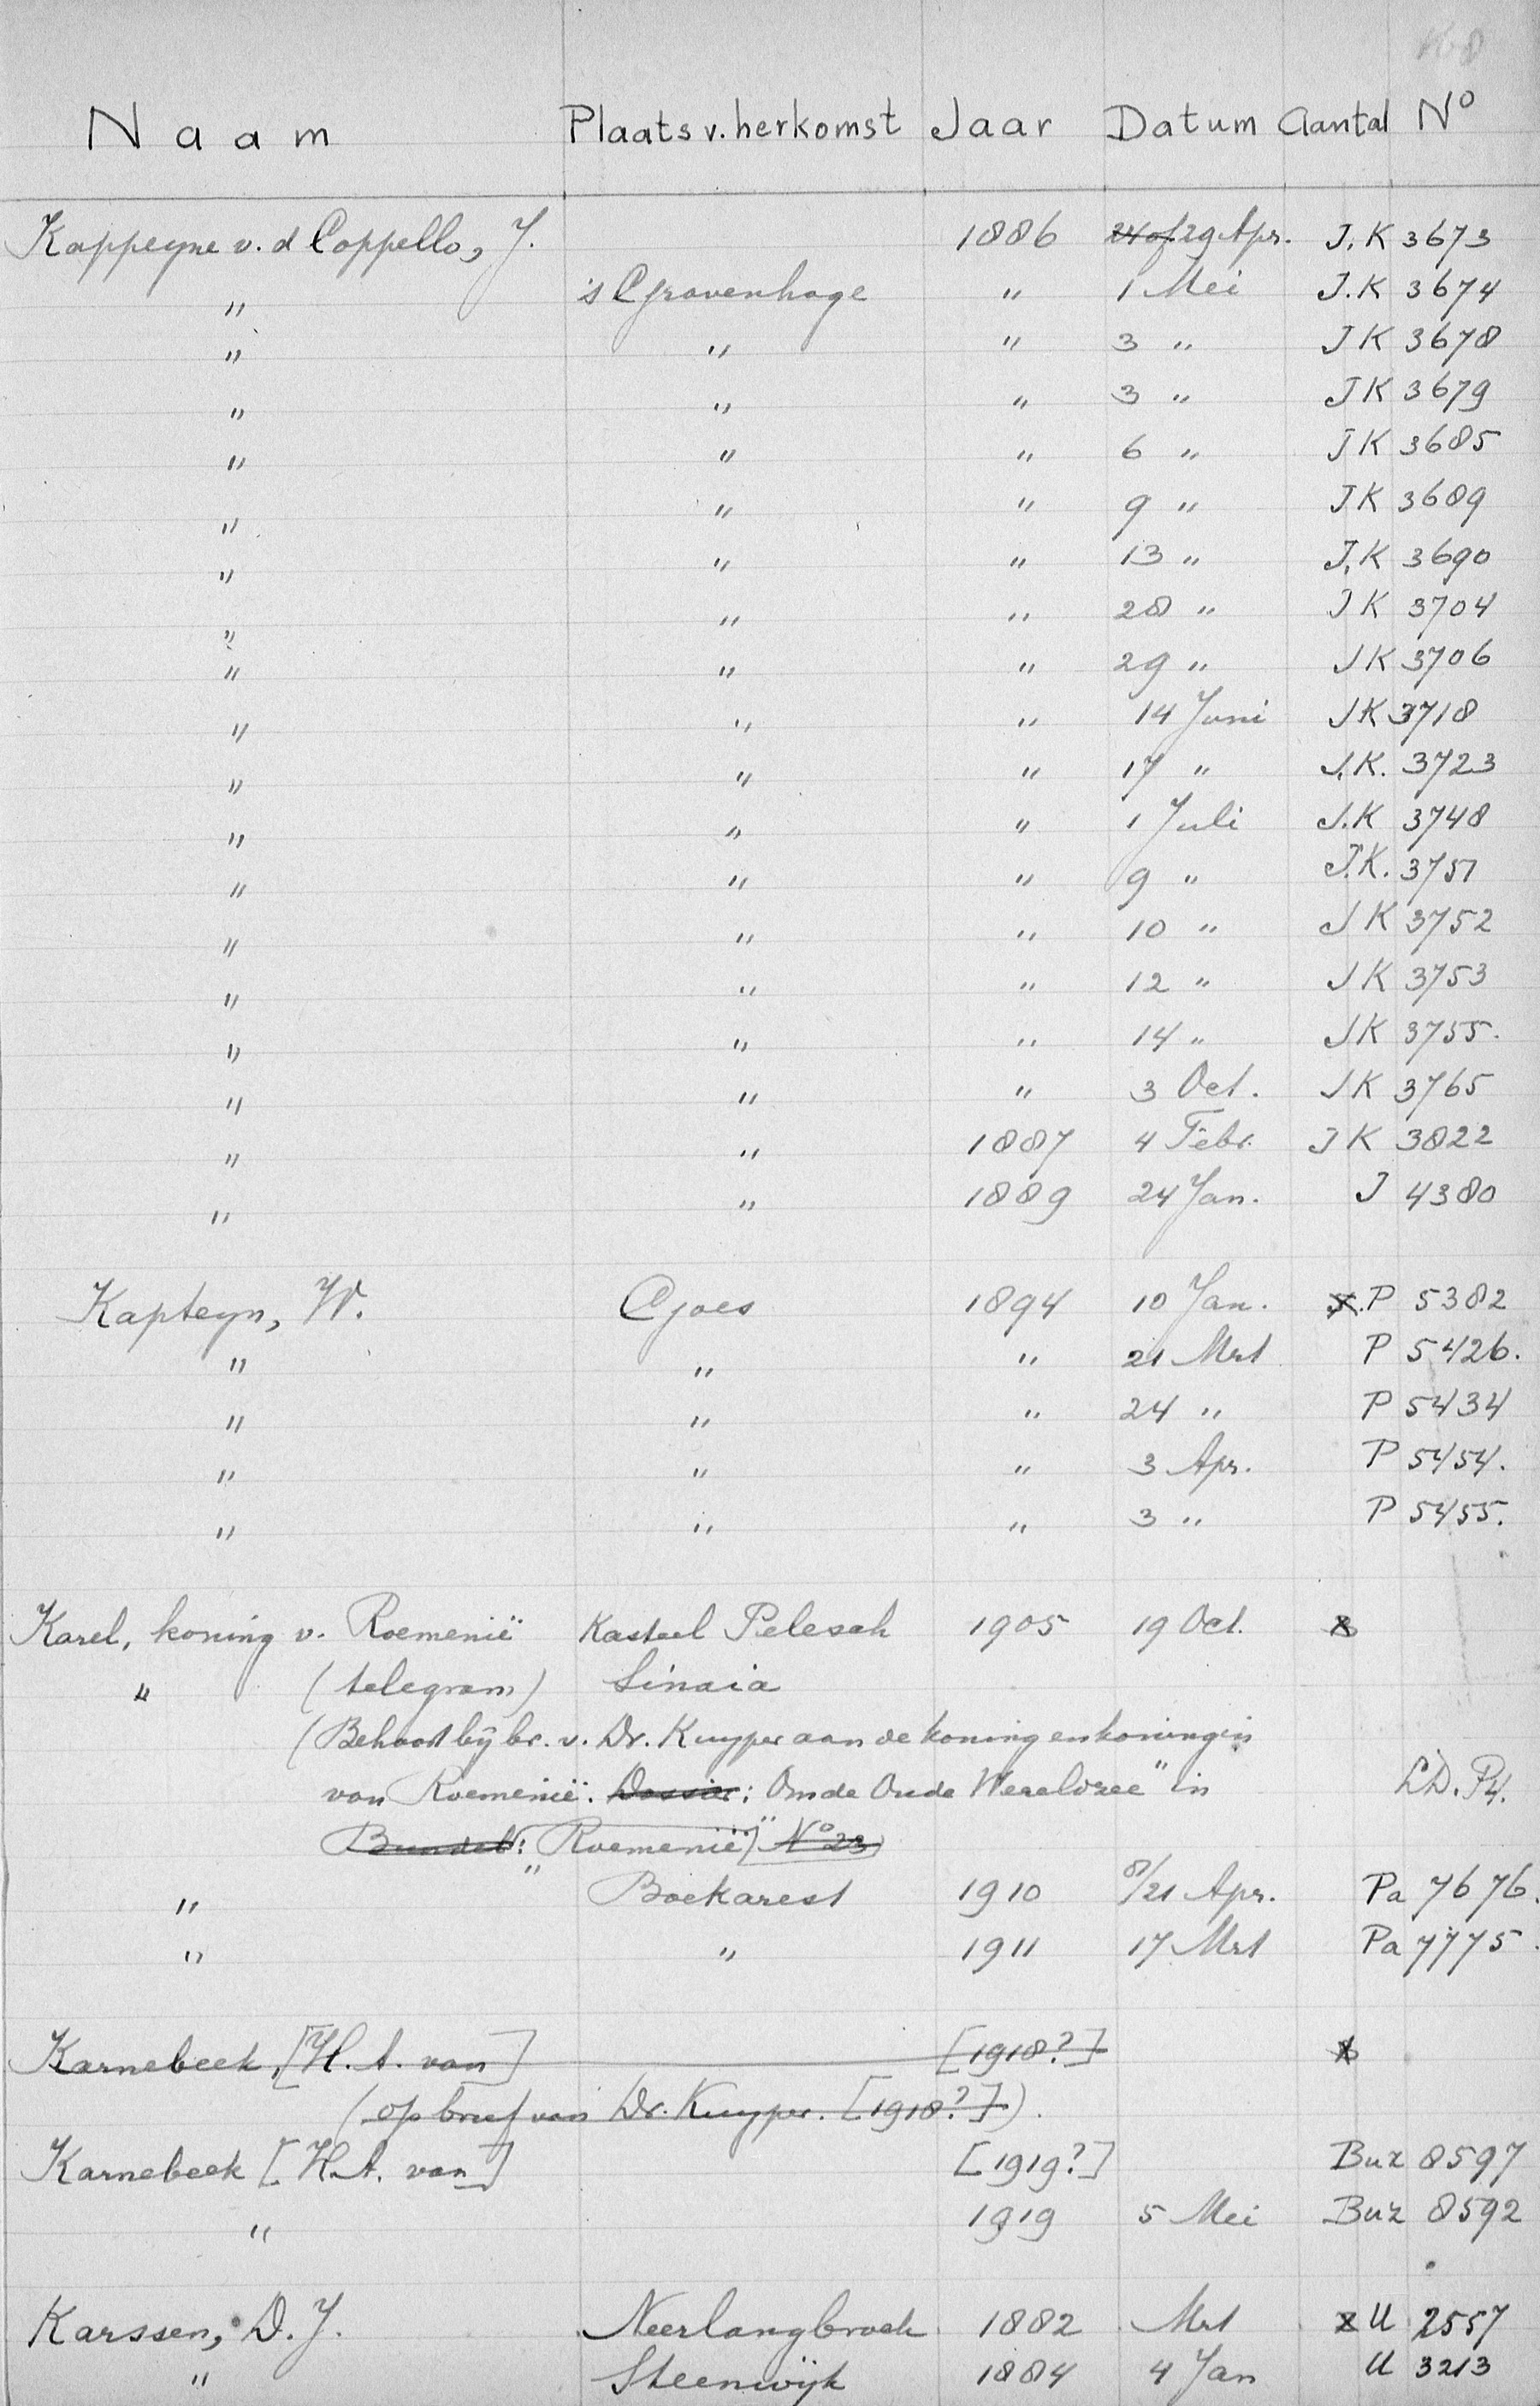 168
Naam Plaats v. herkomst Jaar Datum Aantal No
Kappeyne v. d Coppello, J. 1886 24 of 29 Apr. J.K 3673
" 's Gravenhage " 1 Mei J.K 3674
" " " 3 " JK 3678
" " " 3 " JK 3679
" " " 6 " JK 3685
" " " 9 " JK 3689
" " " 13 " J.K 3690
" " " 28 " JK 3704
" " " 29 " JK 3706
" " " 14 Juni JK 3718
" " " 17 " J.K. 3723
" " " 1 Juli J.K 3748
" " " 9 " J.K. 3751
" " " 10 " JK 3752
" " " 12 " JK 3753
" " " 14 " JK 3755.
" " " 3 Oct. JK 3765
" " 1887 4 Febr. JK 3822
" " 1889 24 Jan. J 4380
Kapteyn, W. Goes 1894 10 Jan. x.P 5382
" " " 21 Mrt P 5426.
" " " 24 " P 5434
" " " 3 Apr. P 5454.
" " " 3 " P 5455.
Karel, koning v. Roemenië Kasteel Pelesch 1905 19 Oct. x
" (telegram) Sinaia
(Behoort bij br. v. Dr. Kuyper aan de koning en koningin
van Roemenië. Dossier: Om de Oude Wereldzee" in L.D. P4.
Bundel: "Roemenië" No 23)
" Boekarest 1910 8/21 Apr. Pa 7676.
" " 1911 17 Mrt Pa 7775.
Karnebeek, [H. A. van] [1918?] x
(op brief van Dr. Kuyper. [1918?]).
Karnebeek [H.A. van] [1919?] Buz 8597
" 1919 5 Mei Buz 8592
Karssen, D. J. Neerlangbroek 1882 Mrt x U 2557
" Steenwijk 1884 4 Jan U 3213